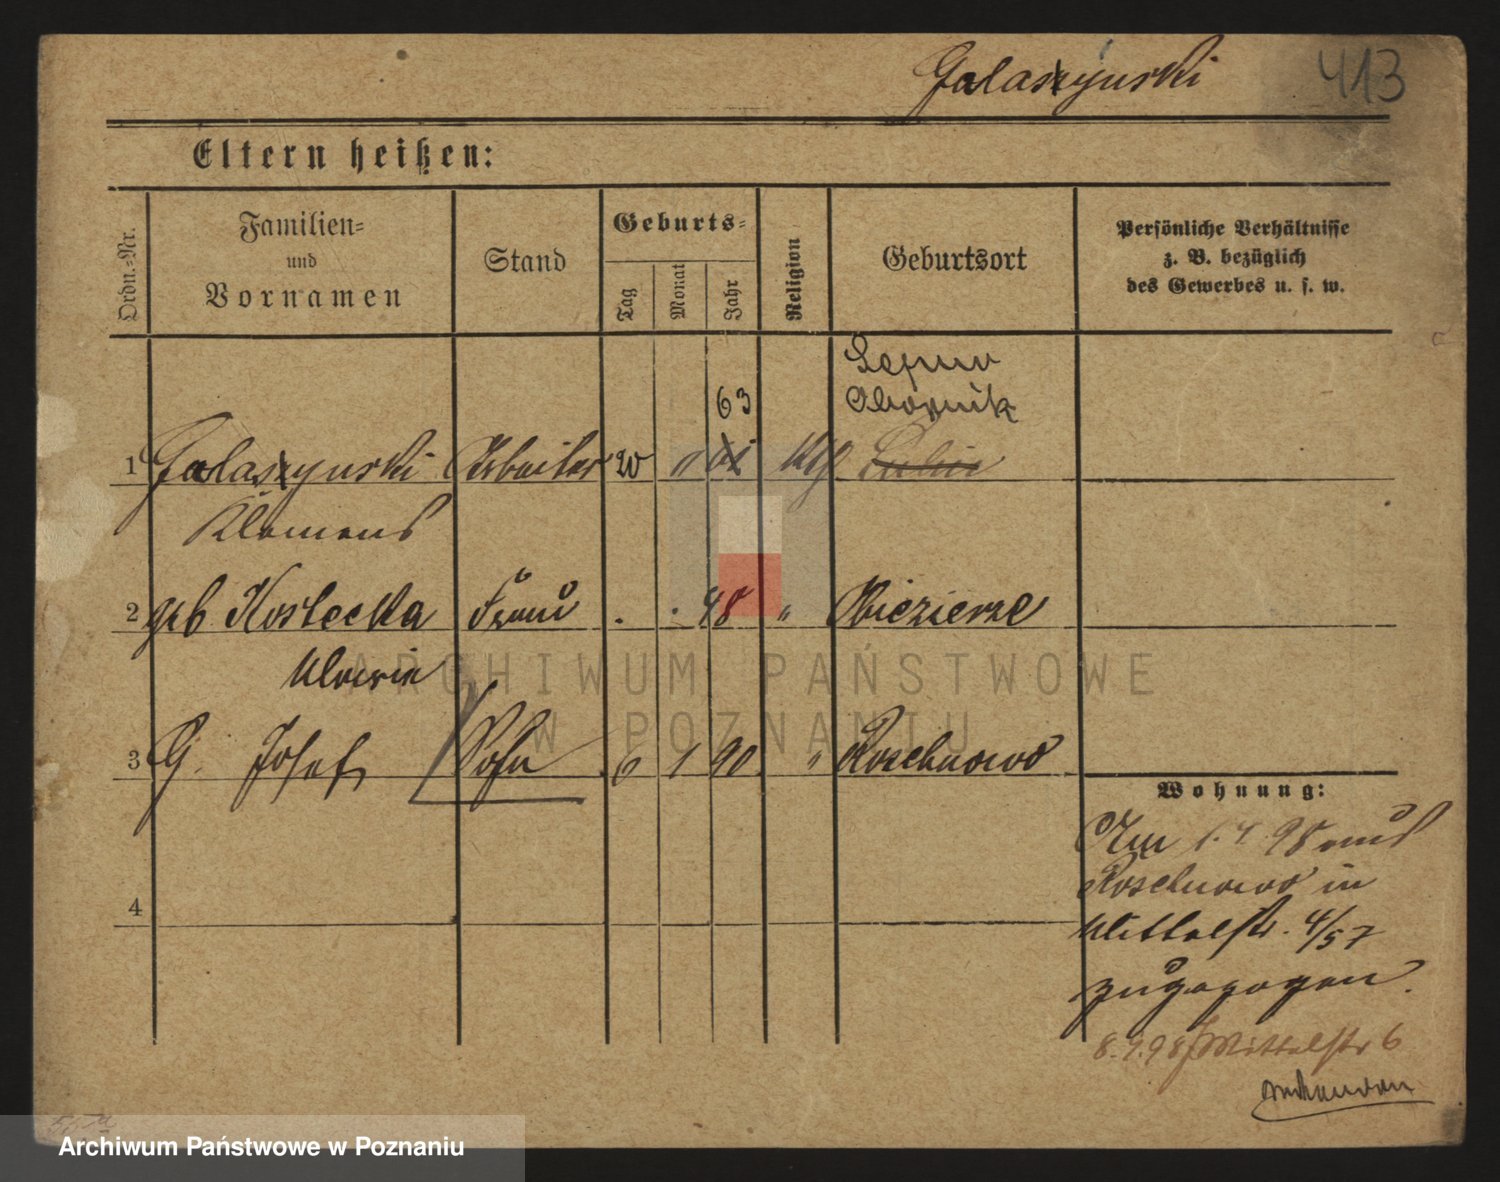 Galaszynski 413
Eltern heißen:
Ordn.-Nr.
Familien-
und
Vornamen
Stand
Geburts-
Tag
Monat
Jahr
Religion
Geburtsort
Persönliche Verhältnisse
z. B. bezüglich
des Gewerbes u. s. w.
Obornik
63
1 Galaszynski Arbeiter 20 kth
Klemens
2 geb. Kostecka Frau . . 48 "
Maria
3 G. Josef Sohn 6 1 90 " Roschnowo
4
Wohnung:
Am 1. 4. 98 aus
Roschnowo in
Mittelstr. 4/57
zugezogen.
8. 9. 98 Mittelstr 6
ARCHIWUM PAŃSTWOWE
W POZNANIU
Archiwum Państwowe w Poznaniu